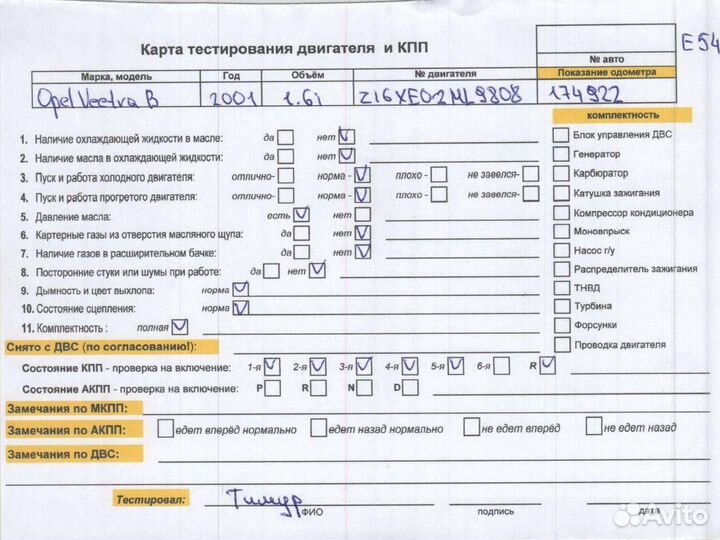 Карта тестирования двигателя и КПП
E54
№ авто
Марка, модель Год Объём № двигателя Показание одометра
Opel Vectra B 2001 1.6i Z16XE02ML9808 174922
комплектность
1. Наличие охлаждающей жидкости в масле: да нет
Блок управления ДВС
2. Наличие масла в охлаждающей жидкости: да нет
Генератор
3. Пуск и работа холодного двигателя: отлично- норма - плохо - не завелся-
Карбюратор
4. Пуск и работа прогретого двигателя: отлично- норма - плохо - не завелся-
Катушка зажигания
5. Давление масла: есть нет
Компрессор кондиционера
6. Картерные газы из отверстия масляного щупа: да нет
Моновпрыск
7. Наличие газов в расширительном бачке: да нет
Насос г/у
8. Посторонние стуки или шумы при работе: да нет
Распределитель зажигания
9. Дымность и цвет выхлопа: норма
ТНВД
10. Состояние сцепления: норма
Турбина
11. Комплектность : полная
Форсунки
Снято с ДВС (по согласованию!):
Проводка двигателя
Состояние КПП - проверка на включение: 1-я 2-я 3-я 4-я 5-я 6-я R
Состояние АКПП - проверка на включение: P R N D
Замечания по МКПП:
Замечания по АКПП: едет вперёд нормально едет назад нормально не едет вперёд не едет назад
Замечания по ДВС:
Тестировал: Тимур
ФИО подпись дата
Avito